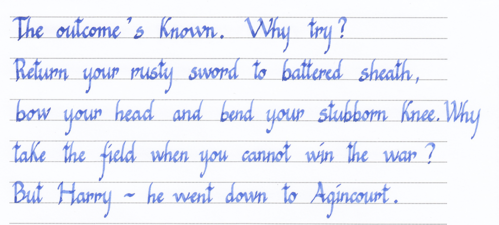 The outcome's known. Why try?
Return your rusty sword to battered sheath,
bow your head and bend your stubborn knee. Why
take the field when you cannot win the war?
But Harry ~ he went down to Agincourt.